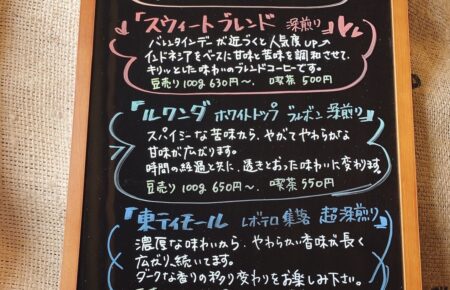 「スウィートブレンド 深煎り」
バレンタインデーが近づくと人気度UP
インドネシアをベースに甘味と苦味を調和させて、
キリッとした味わいのブレンドコーヒーです。
豆売り100g 630円〜. 喫茶 500円
「ルワンダ ホワイトトップ ブルボン 深煎り」
スパイシーな苦味から、やがてやわらかな
甘味が広がります。
時間の経過と共に、透きとおった味わいに変わります
豆売り100g 650円〜. 喫茶 550円
「東ティモール レボテロ集落 超深煎り」
濃厚な味わいから、やわらかい香味が長く
広がり、続いてます。
ダークな香りの移り変わりをお楽しみ下さい。